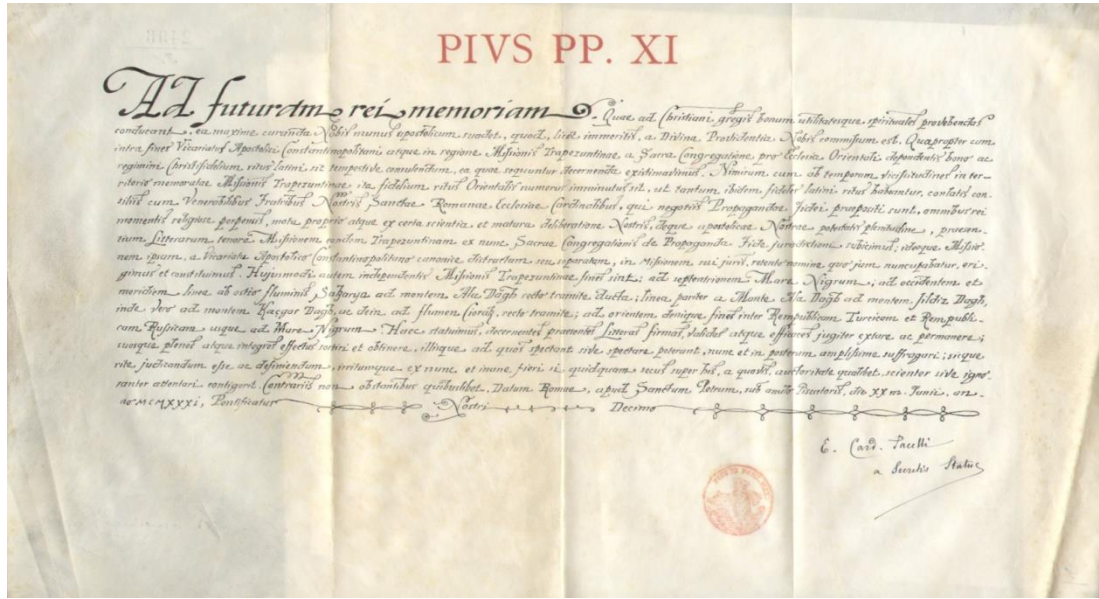 PIVS PP. XI
Ad futuram rei memoriam. Quae ad Christiani gregis bonum utilitatesque spirituales provehendas
conducant, ea maxime curanda Nobis munus apostolicum suadet, quod, licet immeritis, a Divina Providentia Nobis commissum est. Quapropter cum
intra fines Vicariatus Apostolici Constantinopolitani atque in regione Missionis Trapezuntinae, a Sacra Congregatione pro Ecclesia Orientali dependentis bono ac
regimini Christifidelium ritus latini sit tempestive consulendum, ea quae sequuntur decernenda existimavimus. Nimirum cum ob temporum vicissitudines in ter-
ritorio memoratae Missionis Trapezuntinae ita fidelium ritus Orientalis numerus imminutus sit, ut tantum ibidem fideles latini ritus habeantur, conlatis con-
siliis cum Venerabilibus Fratribus Nostris Sanctae Romanae Ecclesiae Cardinalibus, qui negotiis Propagandae Fidei praepositi sunt, omnibus rei
momentis religiose perpensis, motu proprio atque ex certa scientia et matura deliberatione Nostris, deque apostolicae Nostrae potestatis plenitudine, praesen-
tium Litterarum tenore Missionem eandem Trapezuntinam ex nunc Sacrae Congregationis de Propaganda Fide iurisdictioni subiicimus; ideoque Missio-
nem ipsam, a Vicariatu Apostolico Constantinopolitano canonice distractam ac separatam, in Missionem sui juris, retento nomine quo jam nuncupabatur, eri-
gimus et constituimus. Hujusmodi autem independentis Missionis Trapezuntinae fines sint: ad septentrionem Mare Nigrum; ad occidentem et
meridiem linea ab ostio fluminis Sakarya ad montem Ala Dagh recto tramite ducta; linea pariter a Monte Ala Dagh ad montem Jildiz Dagh,
inde vero ad montem Kaçgar Dagh, ac dein ad flumen Çoraq, recto tramite; ad orientem denique fines inter Rempublicam Turcicam et Rempubli-
cam Russicam usque ad Mare Nigrum. Haec statuimus, decernentes praesentes Litteras firmas, validas atque efficaces jugiter extare ac permanere;
suosque plenos atque integros effectus sortiri et obtinere, illisque ad quos spectant sive spectare poterunt, nunc et in posterum amplissime suffragari; sicque
rite judicandum esse ac definiendum, irritumque ex nunc et inane fieri si quidquam secus super his, a quovis, auctoritate qualibet, scienter sive igno-
ranter attentari contigerit. Contrariis non obstantibus quibuslibet. Datum Romae, apud Sanctum Petrum, sub anulo Piscatoris, die XX m. Junii, an-
no MCMXXXI, Pontificatus Nostri Decimo
E. Card. Pacelli
a Secretis Status